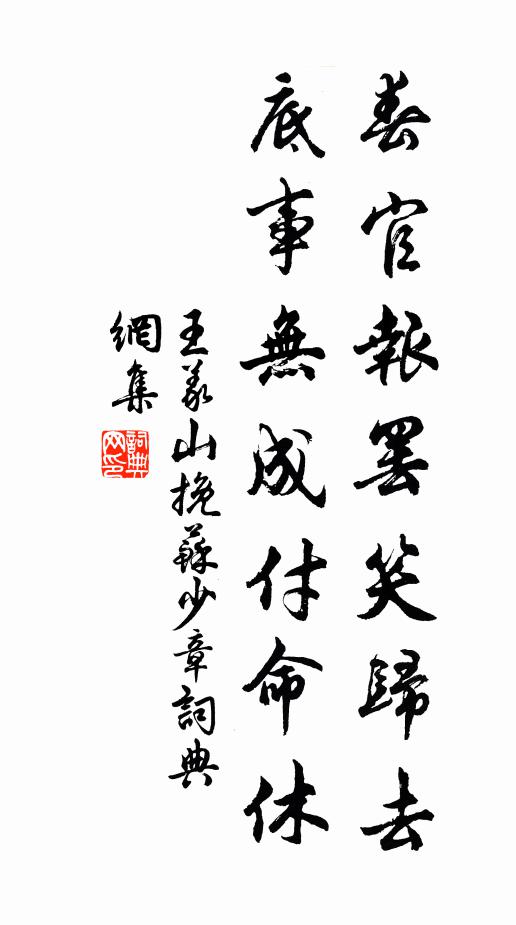 春官報罷笑歸去
底事無成付命休
王義山挽蘇少章詞典
網集
詞典網印